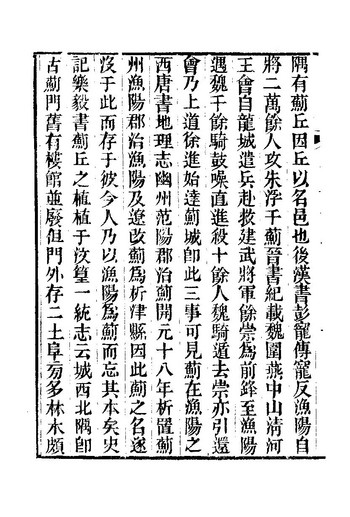 隅有薊丘因丘以名邑也後漢書彭寵傳寵反漁陽自
將二萬餘人攻朱浮于薊晉書紀載魏圍燕中山清河
王會自龍城遣兵赴救建武將軍餘崇為前鋒至漁陽
遇魏千餘騎鼓噪直進殺十餘人魏騎遁去崇亦引還
會乃上道徐進始達薊城卽此三事可見薊在漁陽之
西唐書地理志幽州范陽郡治薊開元十八年析置薊
州漁陽郡治漁陽及遼改薊為析津縣因此薊之名遂
沒于此而存于彼今人乃以漁陽為薊而忘其本矣史
記樂毅書薊丘之植植于汶篁一統志云城西北隅卽
古薊門舊有樓館並廢但門外存二土阜旁多林木頗